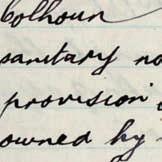 Colhoun
sanitary no
provision
owned by